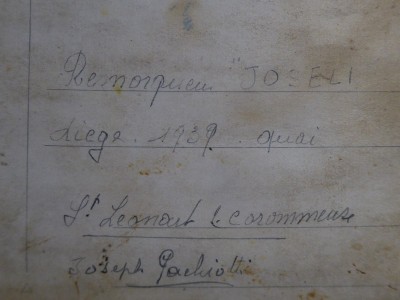 Remorqueur "JOSELI
Liege. 1939. quai
St Leonart & Coronmeuse
Joseph Pachiotti